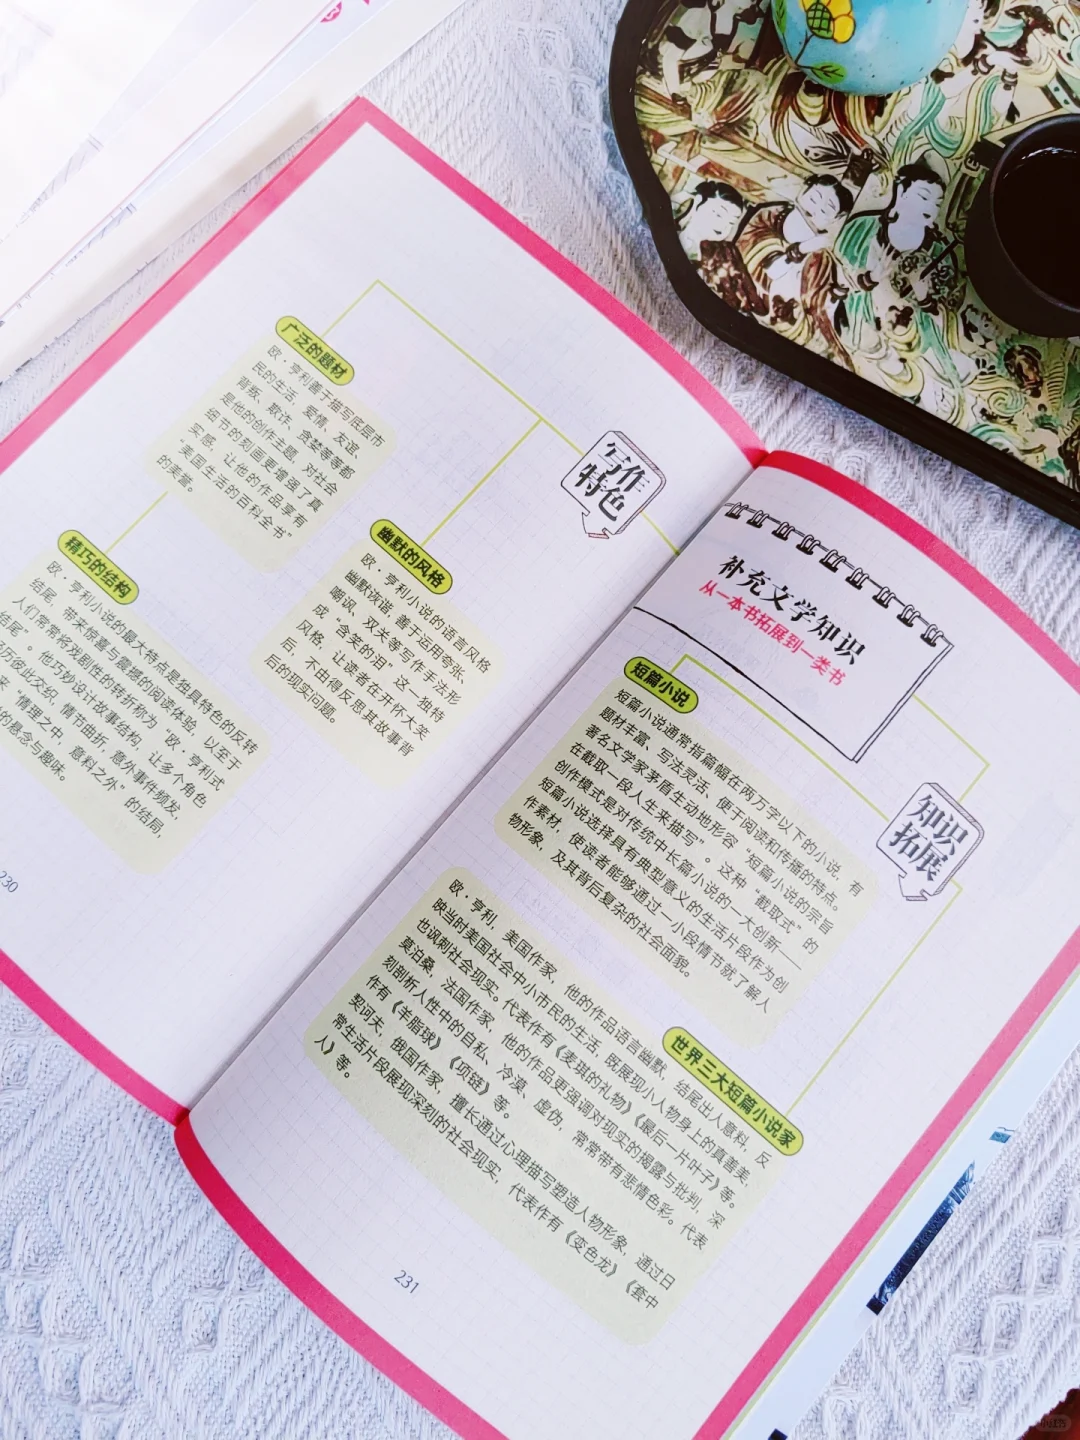 写作
特色
广泛的题材
欧·亨利善于描写底层市
民的生活，爱情、友谊、
背叛、欺诈、贪婪等等都
是他的创作主题，对社会
细节的刻画更增强了真
实感，让他的作品享有
“美国生活的百科全书”
的美誉。
幽默的风格
欧·亨利小说的语言风格
幽默诙谐，善于运用夸张、
嘲讽、双关等写作手法形
成“含笑的泪”这一独特
风格，让读者在开怀大笑
后，不由得反思其故事背
后的现实问题。
精巧的结构
欧·亨利小说的最大特点是独具特色的反转
结尾，带来惊喜与震撼的阅读体验，以至于
人们常常将戏剧性的转折称为“欧·亨利式
结尾”。他巧妙设计故事结构，让多个角色
经历彼此交织，情节曲折，意外事件频发，
来“情理之中，意料之外”的结局，
的悬念与趣味。
230
补充文学知识
从一本书拓展到一类书
知识
拓展
短篇小说
短篇小说通常指篇幅在两万字以下的小说，有
题材丰富、写法灵活、便于阅读和传播的特点。
著名文学家茅盾生动地形容“短篇小说的宗旨
在截取一段人生来描写”。这种“截取式”的
创作模式是对传统中长篇小说的一大创新——
短篇小说选择具有典型意义的生活片段作为创
作素材，使读者能够通过一小段情节就了解人
物形象，及其背后复杂的社会面貌。
世界三大短篇小说家
欧·亨利，美国作家，他的作品语言幽默，结尾出人意料，反
映当时美国社会中小市民的生活，既展现小人物身上的真善美，
也讽刺社会现实。代表作有《麦琪的礼物》《最后一片叶子》等。
莫泊桑，法国作家，他的作品更强调对现实的揭露与批判，深
刻剖析人性中的自私、冷漠、虚伪，常常带有悲情色彩。代表
作有《羊脂球》《项链》等。
契诃夫，俄国作家，擅长通过心理描写塑造人物形象，通过日
常生活片段展现深刻的社会现实，代表作有《变色龙》《套中
人》等。
231